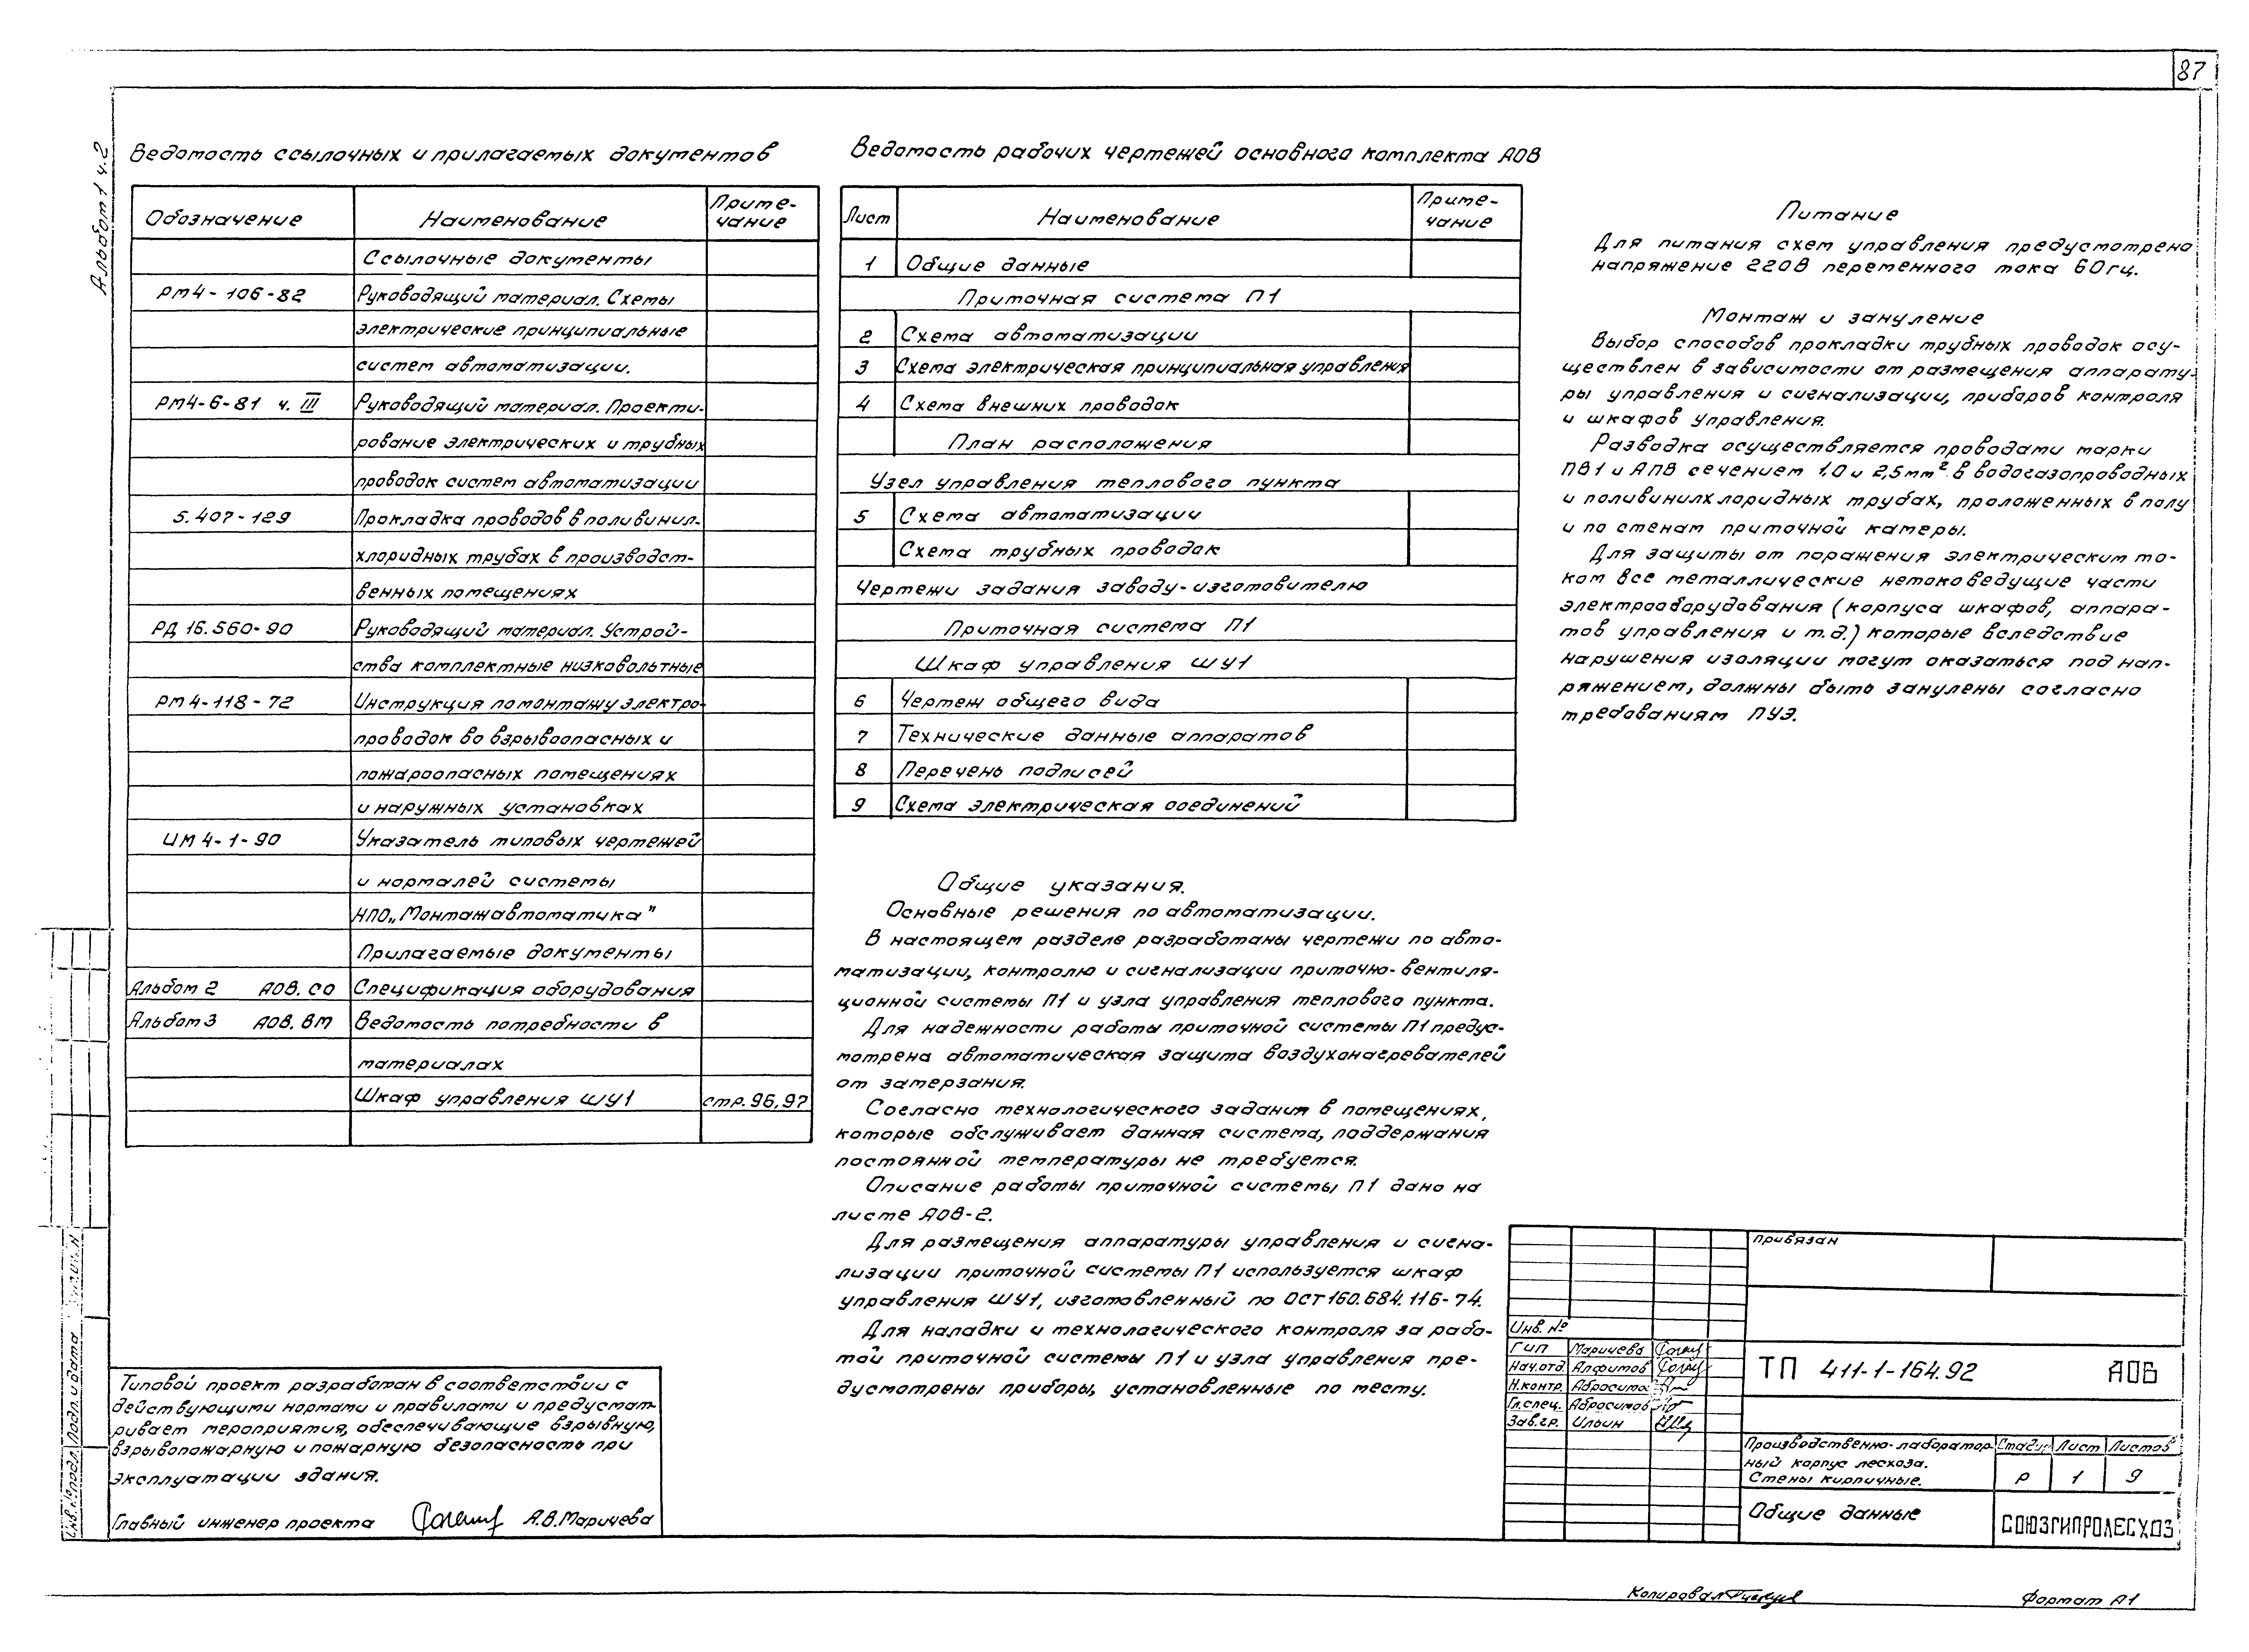 87
Альбом 1 ч.2
Ведомость ссылочных и прилагаемых документов
Обозначение Наименование Приме-
чание
Ссылочные документы
РМ4-106-82 Руководящий материал. Схемы
электрические принципиальные
систем автоматизации.
РМ4-6-81 ч. III Руководящий материал. Проекти-
рование электрических и трубных
проводок систем автоматизации
5.407-129 Прокладка проводов в поливинил-
хлоридных трубах в производст-
венных помещениях
РД 16.560-90 Руководящий материал. Устрой-
ства комплектные низковольтные
РМ4-118-72 Инструкция по монтажу электро-
проводок во взрывоопасных и
пожароопасных помещениях
и наружных установках
ИМ4-1-90 Указатель типовых чертежей
и нормалей системы
НПО „Монтажавтоматика"
Прилагаемые документы
Альбом 2 АОВ.СО Спецификация оборудования
Альбом 3 АОВ.ВМ Ведомость потребности в
материалах
Шкаф управления ШУ1 стр. 96,97
Ведомость рабочих чертежей основного комплекта АОВ
Лист Наименование Приме-
чание
1 Общие данные
Приточная система П1
2 Схема автоматизации
3 Схема электрическая принципиальная управления
4 Схема внешних проводок
План расположения
Узел управления теплового пункта
5 Схема автоматизации
Схема трубных проводок
Чертежи задания заводу-изготовителю
Приточная система П1
Шкаф управления ШУ1
6 Чертеж общего вида
7 Технические данные аппаратов
8 Перечень подписей
9 Схема электрическая соединений
Общие указания.
Основные решения по автоматизации.
В настоящем разделе разработаны чертежи по авто-
матизации, контролю и сигнализации приточно-вентиля-
ционной системы П1 и узла управления теплового пункта.
Для надежности работы приточной системы П1 предус-
мотрена автоматическая защита воздухонагревателей
от замерзания.
Согласно технологического задания в помещениях,
которые обслуживает данная система, поддержания
постоянной температуры не требуется.
Описание работы приточной системы П1 дано на
листе АОВ-2.
Для размещения аппаратуры управления и сигна-
лизации приточной системы П1 используется шкаф
управления ШУ1, изготовленный по ОСТ160.684.116-74.
Для наладки и технологического контроля за рабо-
той приточной системы П1 и узла управления пре-
дусмотрены приборы, установленные по месту.
Питание
Для питания схем управления предусмотрено
напряжение 220В переменного тока 60гц.
Монтаж и зануление
Выбор способов прокладки трубных проводок осу-
ществлен в зависимости от размещения аппарату-
ры управления и сигнализации, приборов контроля
и шкафов управления.
Разводка осуществляется проводами марки
ПВ1 и АПВ сечением 1.0 и 2,5мм² в водогазопроводных
и поливинилхлоридных трубах, проложенных в полу
и по стенам приточной камеры.
Для защиты от поражения электрическим то-
ком все металлические нетоковедущие части
электрооборудования (корпуса шкафов, аппара-
тов управления и т.д.) которые вследствие
нарушения изоляции могут оказаться под нап-
ряжением, должны быть занулены согласно
требованиям ПУЭ.
Типовой проект разработан в соответствии с
действующими нормами и правилами и предусмат-
ривает мероприятия, обеспечивающие взрывную,
взрывопожарную и пожарную безопасность при
эксплуатации здания.
Главный инженер проекта А.В.Маричева
Инв.№подл. Подп. и дата
привязан
Инв. №
ГИП Маричева
Нач.отд. Алфимов
Н.контр. Абросимов
Гл.спец. Абросимов
Зав.гр. Ильин
ТП 411-1-164.92 АОВ
Производственно-лаборатор-
ный корпус лесхоза.
Стены кирпичные.
Стадия Лист Листов
Р 1 9
Общие данные
СОЮЗГИПРОЛЕСХОЗ
Копировал
Формат А1